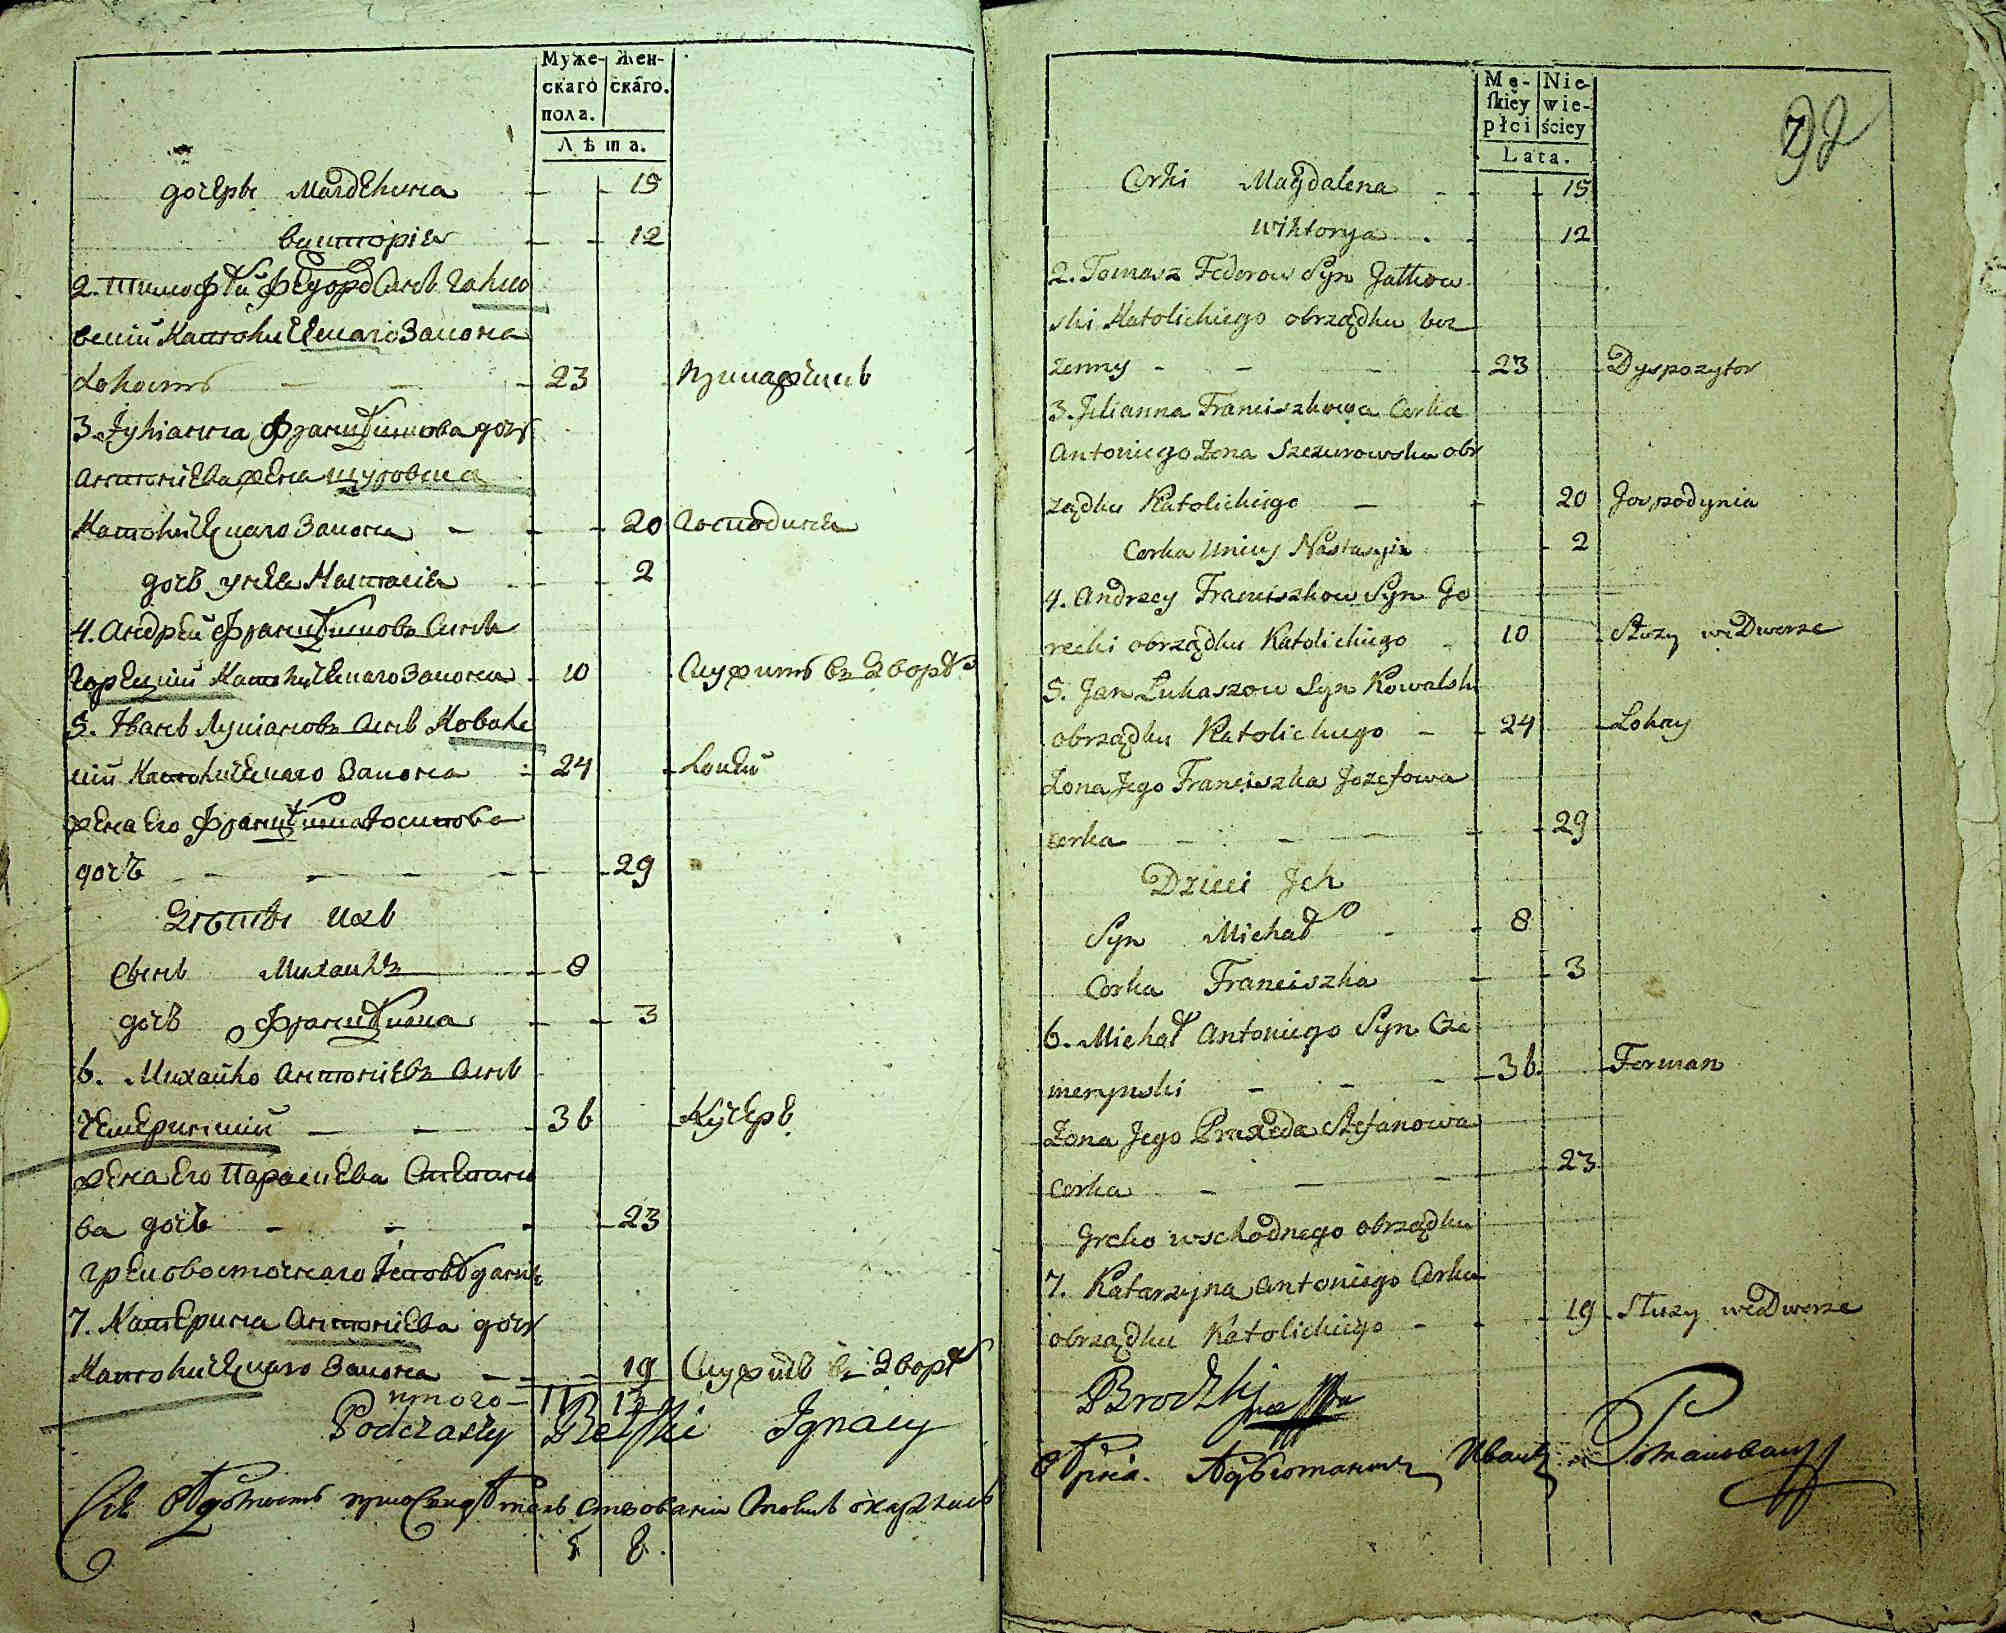 Муже-
скаго
пола.
Жен-
скаго.
Лѣта.
дочерь Магдельина - - 15
Викторія - - 12
2. Тимофѣй Федоров Синъ Галко
вский Католическаго Закона
Холостъ - - - 23
3. Юлианна Францишкова дочь
Антониева жена Щуровска
Католическаго Закона - - - 20 Господиня
дочъ унея Настасія - - 2
4. Андрей Францишковъ Синъ
Горецкий Католическаго Закона - 10 Служитъ въ Дворѣ
5. Иванъ Лукіановъ Синъ Коваль
ский Католическаго Закона - 24 Локей
жена Его Францишка Іосипова
дочъ - - - - - 29
Дѣти ихъ
Сынъ Михаилъ - 8
дочъ Францишка - - 3
6. Михайло Антониевъ Синъ
Чемеринский - - - 36 Кучеръ
жена Его Параскева Степано
ва дочъ - - - - 23
греко восточнаго Исповѣдания
7. Катерина Антониева дочь
Католическаго Закона - - - 19 Служитъ въ Дворѣ
итого - 11 13
Podczaszy Betski Ignacy
5 8.
Mę-
ſkiey
płci
Nie-
wie-
ściey
Lata.
92
Corki Magdalena - - 15
Wiktorya - - 12
2. Tomasz Fedorow Syn Gałkow
ski Katolickiego obrządku bez
zenny - - - - 23 Dyspozytor
3. Julianna Franciszkowa Corka
Antoniego Żona Szczurowska obr
ządku Katolickiego - - 20 Gospodynia
Corka Uniey Nastasyia - 2
4. Andrzey Franciszkow Syn Go
recki obrządku Katolickiego - 10 Służy we Dworze
5. Jan Łukaszow Syn Kowalski
obrządku Katolickiego - - 24 Lokay
Żona Jego Franciszka Jozefowa
corka - - - - - 29
Dzieci Jch
Syn Michał - - 8
Corka Franciszka - - 3
6. Michał Antoniego Syn Cze
merynski - - - - 36. Forman
Żona Jego Praxeda Stefanowa
corka - - - - 23
Grcko wschodnego obrządku
7. Katarzyna Antoniego Corka
obrządku Katolickiego - - - 19 Służy we Dworze